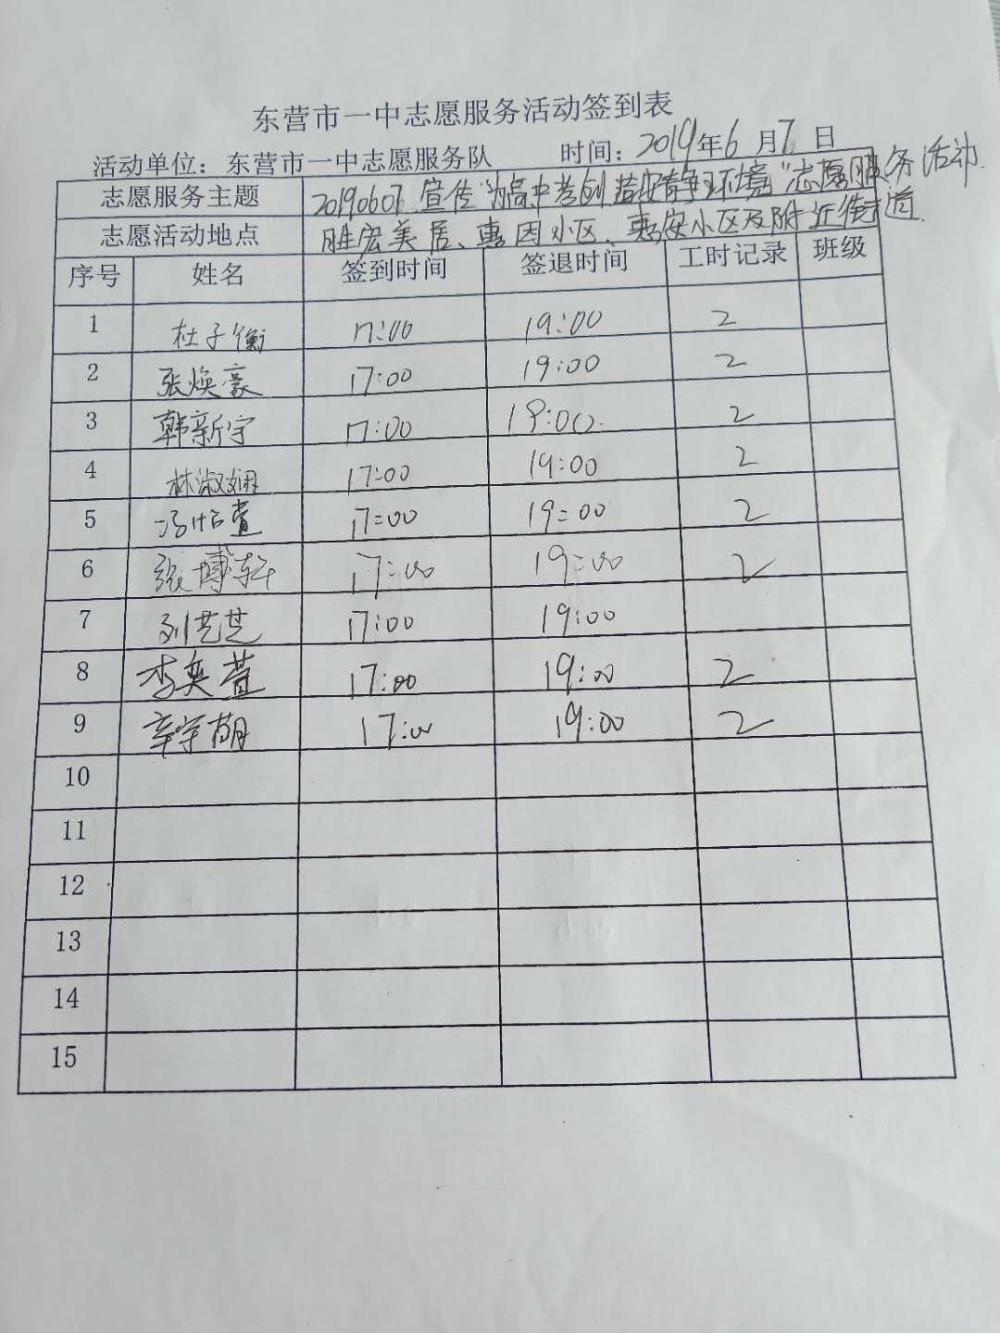 东营市一中志愿服务活动签到表
活动单位：东营市一中志愿服务队 时间：2019年6月7日
志愿服务主题 20190607宣传“为高中考创造安静环境”志愿服务活动
志愿活动地点 胜宏美居、惠因小区、惠安小区及附近街道
序号 姓名 签到时间 签退时间 工时记录 班级
1 杜子衡 17:00 19:00 2
2 张焕豪 17:00 19:00 2
3 韩新宇 17:00 19:00. 2
4 林淑娴 17:00 19:00 2
5 17:00 19:00 2
6 张博轩 17:00 19:00 2
7 刘芸芝 17:00 19:00
8 李奕萱 17:00 19:00 2
9 辛宇 17:00 19:00 2
10
11
12
13
14
15